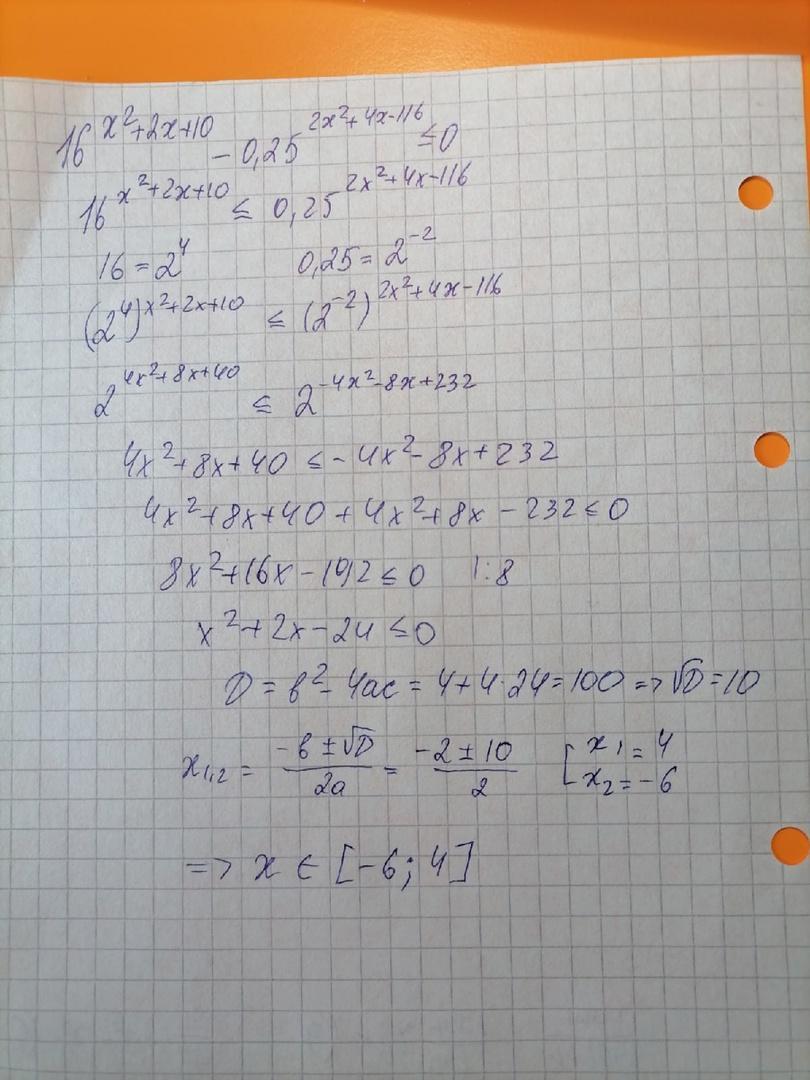 16^{x²+2x+10} - 0,25^{2x²+4x-116} ≤ 0
16^{x²+2x+10} ≤ 0,25^{2x²+4x-116}
16 = 2⁴ 0,25 = 2^{-2}
(2⁴)^{x²+2x+10} ≤ (2^{-2})^{2x²+4x-116}
2^{4x²+8x+40} ≤ 2^{-4x²-8x+232}
4x²+8x+40 ≤ -4x²-8x+232
4x²+8x+40+4x²+8x-232 ≤ 0
8x²+16x-192 ≤ 0 |:8
x²+2x-24 ≤ 0
D = b²-4ac = 4+4·24 = 100 => √D = 10
x_{1,2} = \frac{-b±√D}{2a} = \frac{-2±10}{2} [x₁ = 4 x₂ = -6
=> x ∈ [-6; 4]